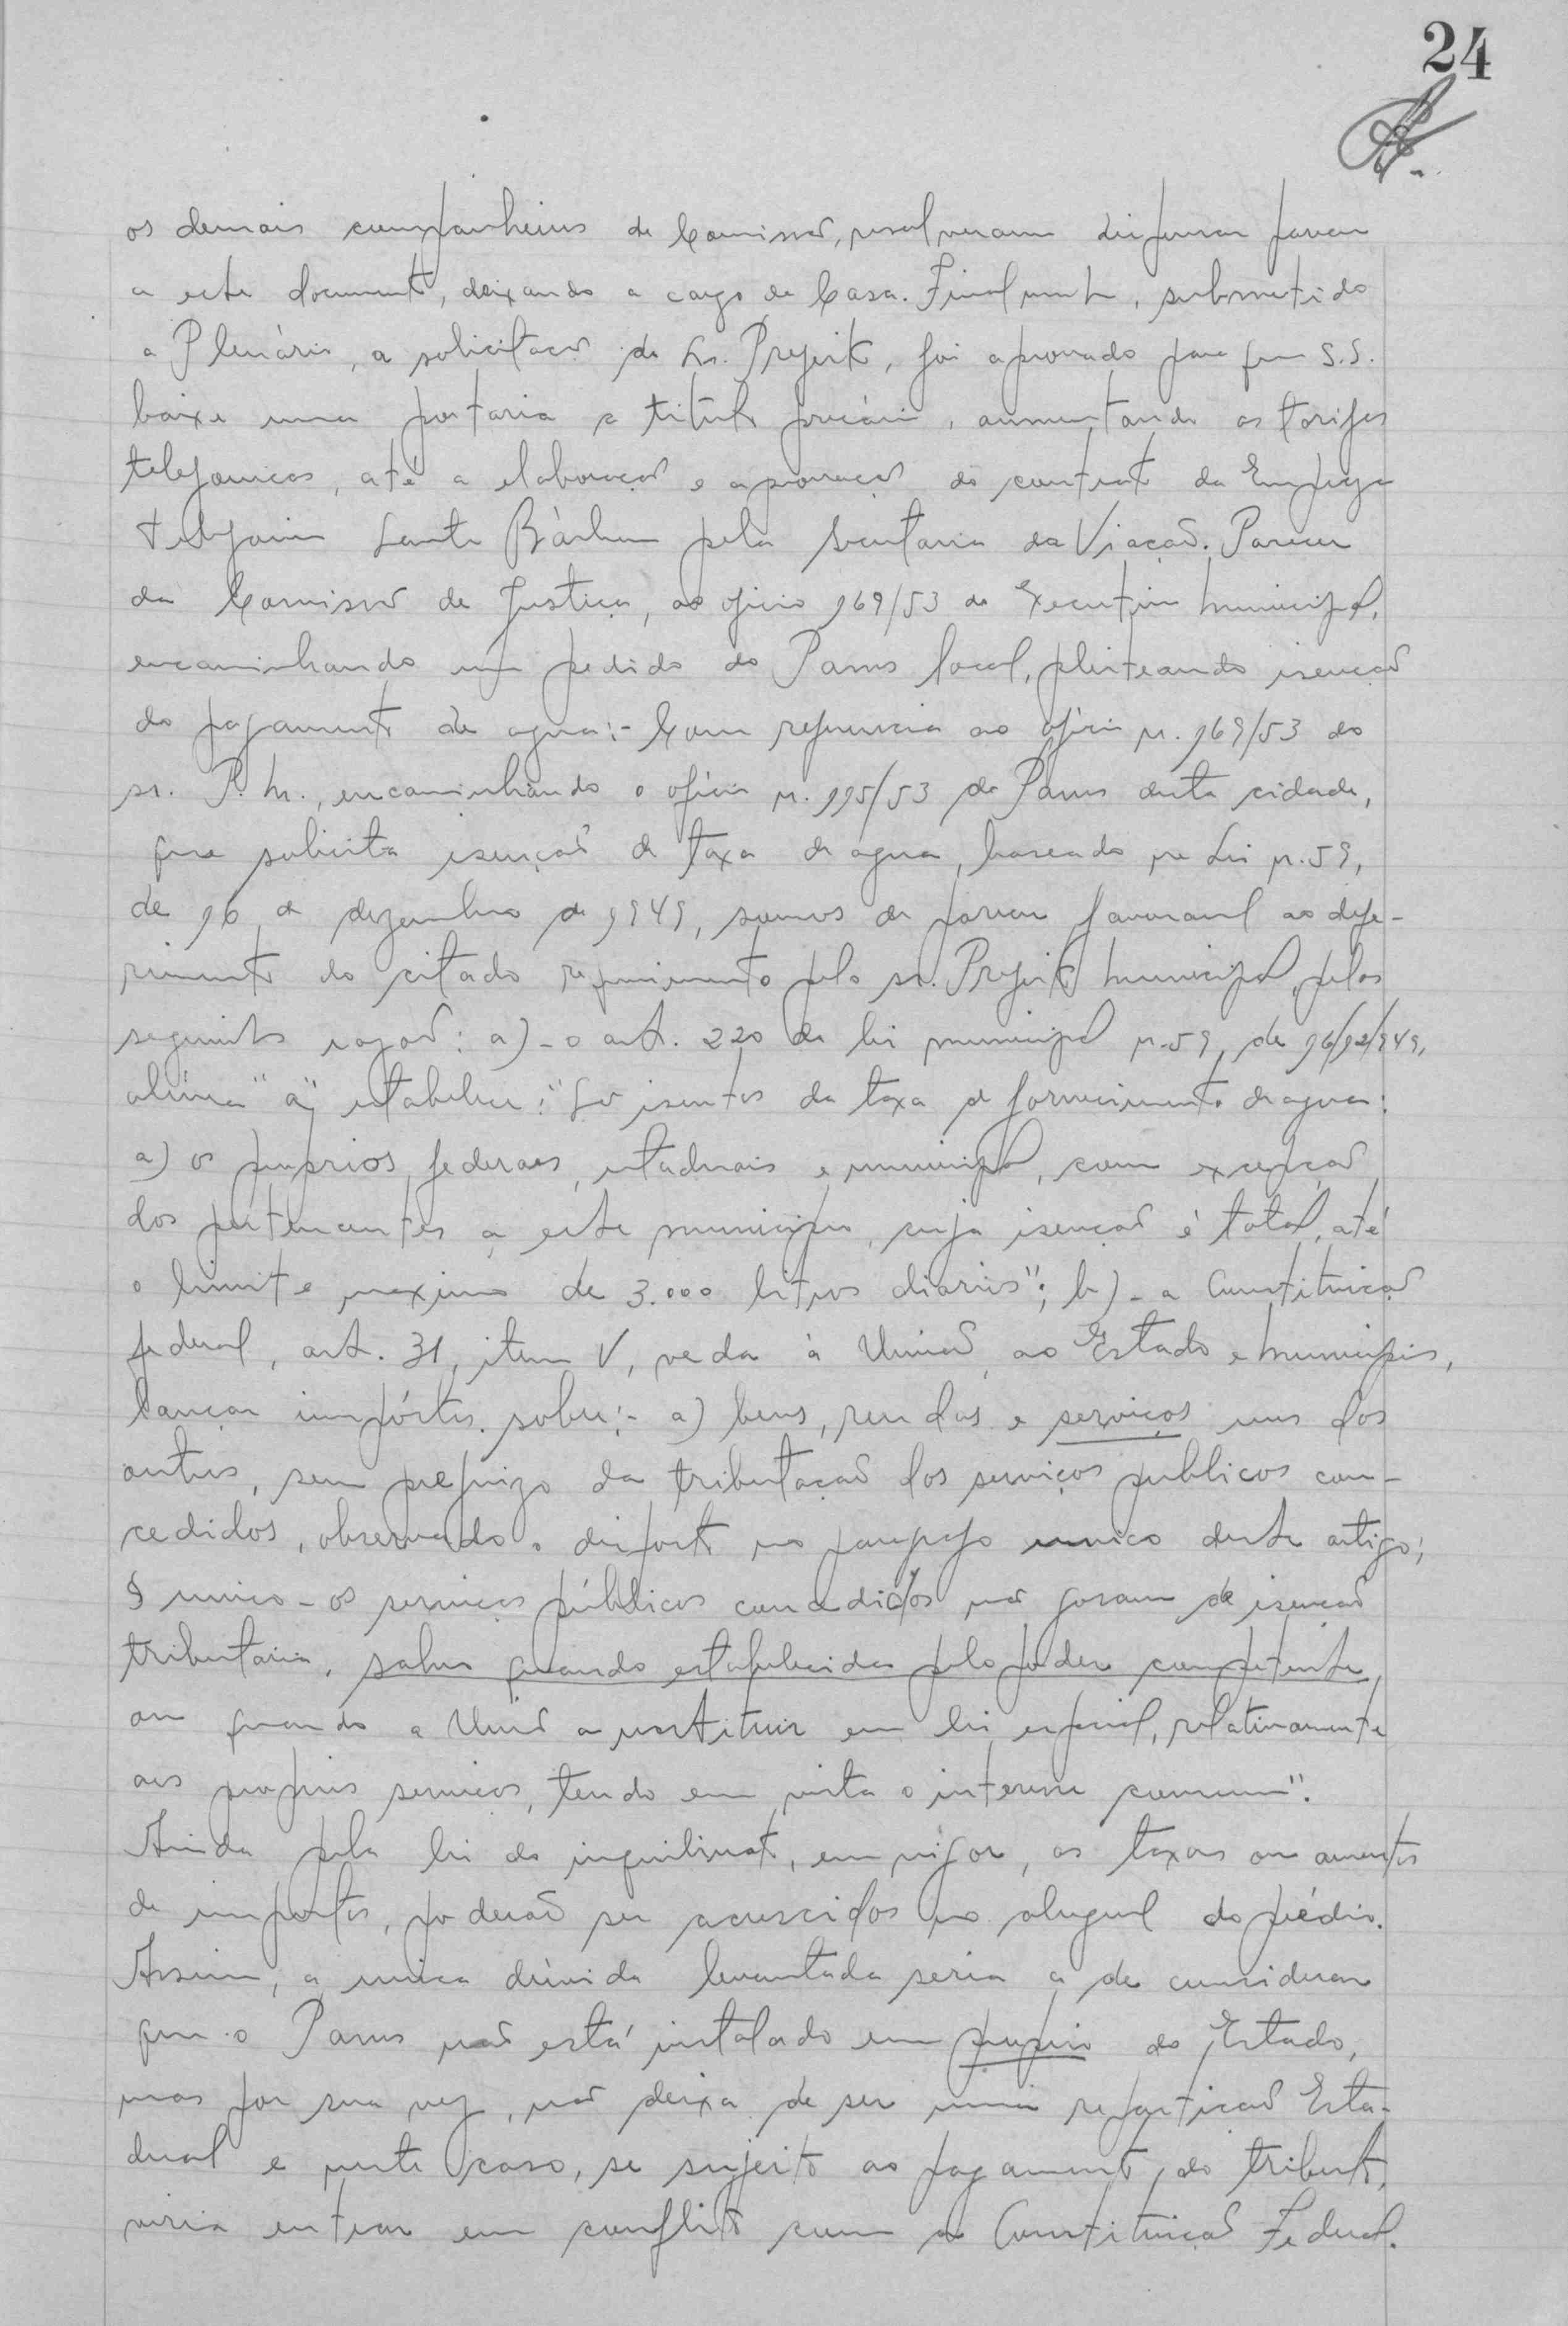 24
os demais companheiros da Comissão, resolveram dispensar parecer
a este documento, deixando a cargo da Casa. Finalmente, submetido
a Plenário, a solicitação do Sr. Prefeito, foi aprovado para que S.S.
baixe uma portaria a titulo precário, aumentando as tarifas
telefonicas, até a elaboração e aprovação do contrato da Empresa
Telefonica Santa Bárbara pela Secretaria da Viação. Parecer
da Comissão de Justiça, ao oficio 169/53 do Executivo Municipal,
encaminhando um pedido do Panos local, pleiteando isenção
do pagamento de agua:- Com referencia ao oficio n. 169/53 do
sr. P. M., encaminhando o oficio n. 115/53 do Panos desta cidade,
que solicita isenção da taxa de agua, baseado na Lei n. 59,
de 16 de dezembro de 1949, somos de parecer favoravel ao defe-
rimento do citado requerimento pelo sr. Prefeito Municipal, pelas
seguintes razões: a)- o art. 220 da lei municipal n. 59, de 16/12/949,
alinea "a" estabelece: "São isentos da taxa de fornecimento de agua:
a) os proprios federaes, estaduais e municipal, com excepção
dos pertencentes a este municipio, cuja isenção é total, até
o limite maximo de 3.000 litros diarios"; b)- a Constituição
federal, art. 31, item V, veda à União, ao Estado e Municipio,
lançar impóstos sobre:- a) bens, rendas e serviços uns dos
outros, sem prejuizo da tributação dos serviços publicos con-
cedidos, observado o disposto no paragrafo unico deste artigo;
§ unico - os serviços públicos concedidos não gosam de isenção
tributaria, salvo quando estabelecida pelo poder competente,
ou quando a União a instituir em lei especial, relativamente
aos proprios serviços, tendo em vista o interesse comum".
Ainda pela lei do inquilinato, em vigor, as taxas ou aumentos
de impostos, poderão ser acrescidos no aluguel do prédio.
Assim, a unica dúvida levantada seria a de considerar
que o Panos não está instalado em proprio do Estado,
mas por sua vez, não deixa de ser uma repartição Esta-
dual e neste caso, se sujeito ao pagamento do tributo,
viria entrar em conflito com a Constituição Federal.